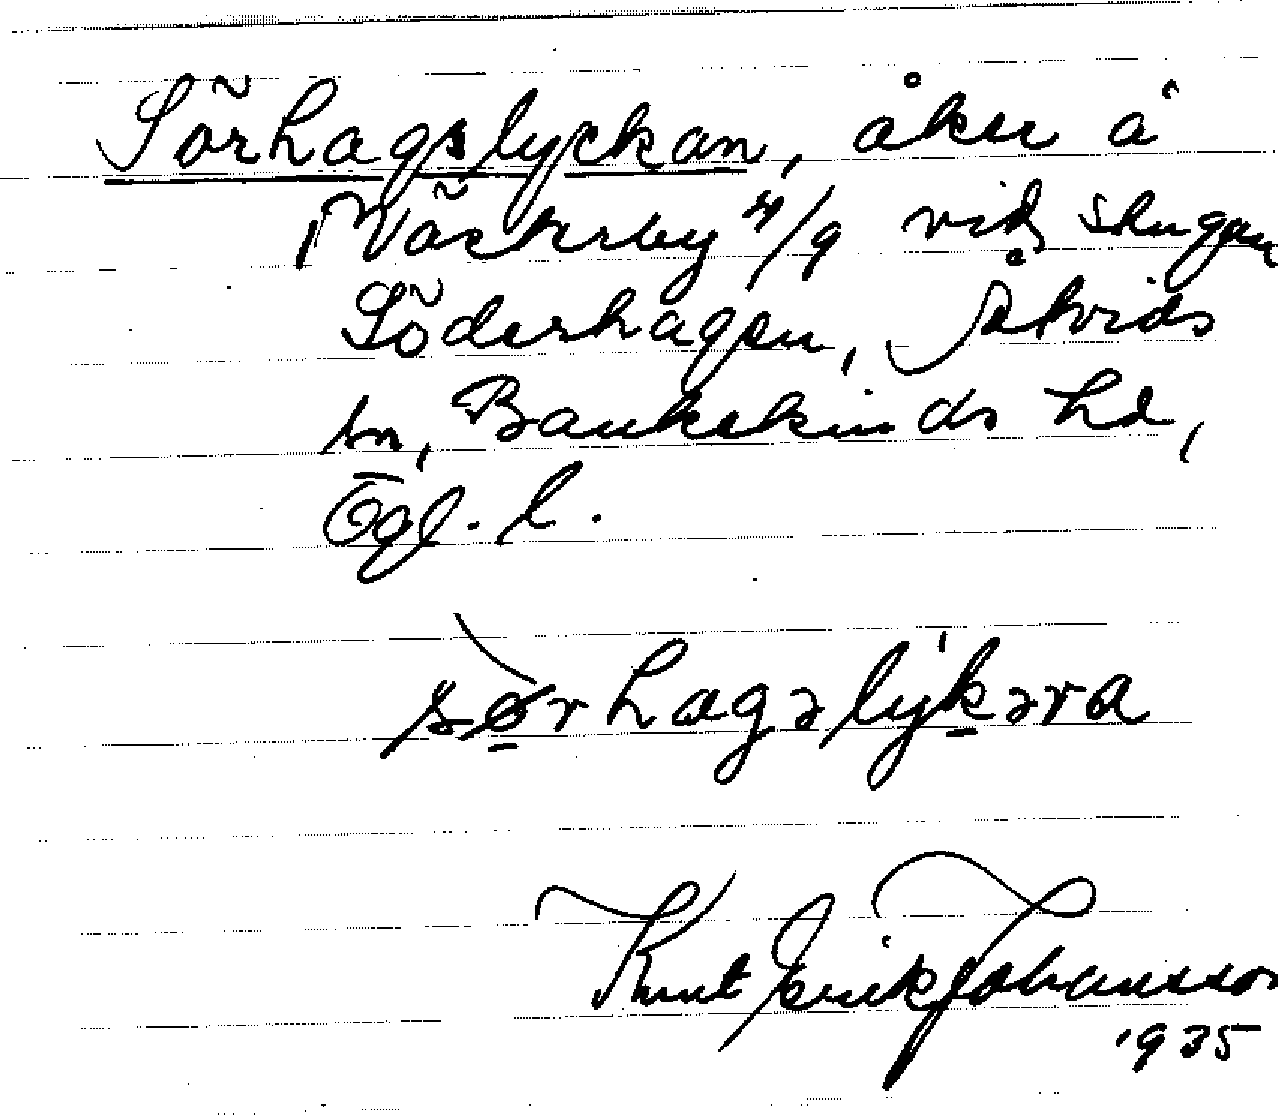 Sörhagslyckan, åker å
Västerby 4/9 vid stugan
Söderhagen, Åtvids
sn, Bankekinds hd,
Ögl. l.
sørhagəlykəra
Knut Erik Johansson
1935